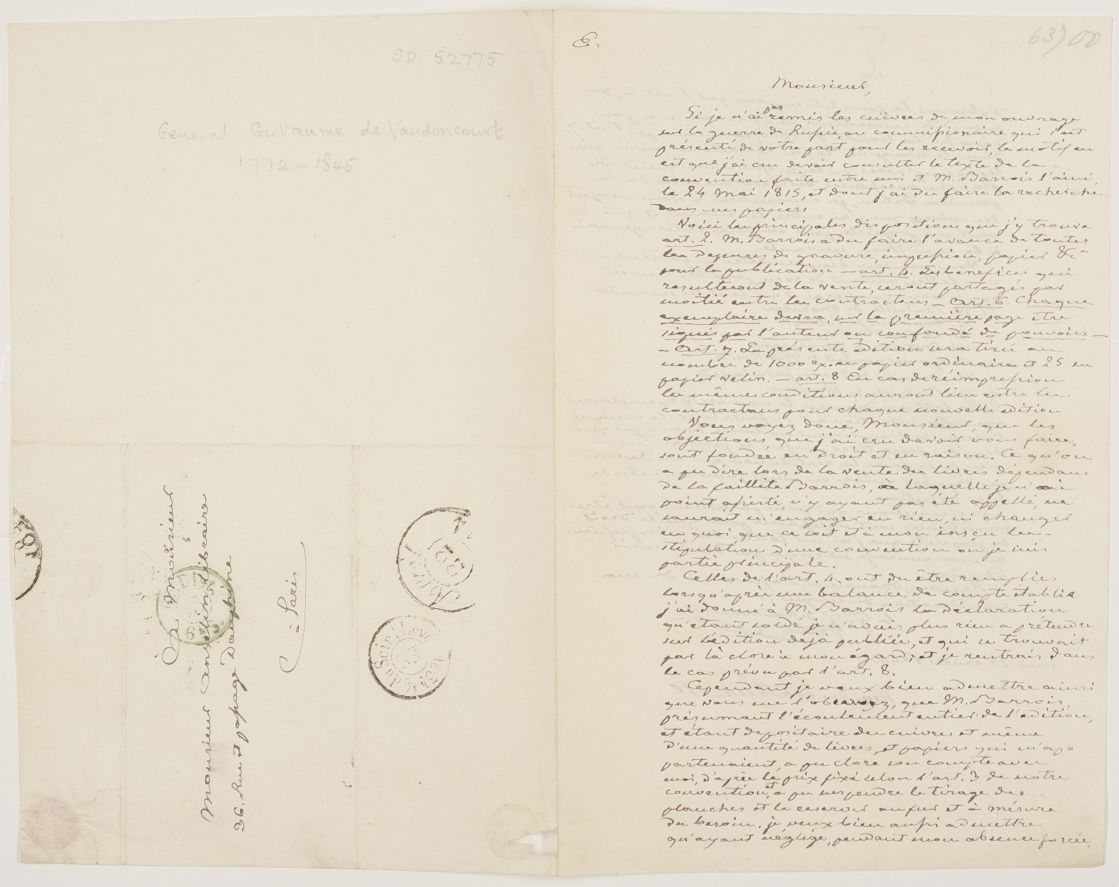 SD 52775
General Guillaume de Vaudoncourt
1772 – 1845
A Monsieur
Monsieur Anselin libraire
36. Rue et passage Dauphine
à Paris
63) 00
Monsieur,
Si je n'ai pas remis les cuivres de mon ouvrage
sur la guerre de Russie, au commissionaire qui s'est
présenté de votre part pour les recevoir, le motif en
est que j'ai cru devoir consulter le texte de la
convention faite entre moi et M. Barrois l'ainé
le 24 Mai 1815, et dont j'ai du faire la recherche
dans mes papiers
Voici les principales dispositions que j'y trouve
art. 2. M. Barrois a du faire l'avance de toutes
les dépenses de gravure, impression, papier &c
pour la publication – art. 4. Les benefices qui
resulteront de la vente, seront partagés par
moitié entre les contractans – art. 6. Chaque
exemplaire devra, sur la première page être
signé par l'auteur ou son fondé de pouvoirs –
– art. 7. La présente édition sera tirée au
nombre de 1000 ex. en papier ordinaire et 25 en
papier velin. – art. 8 En cas de réimpression
les mêmes conditions auront lieu entre les
contractans pour chaque nouvelle édition
Vous voyez donc, Monsieur, que les
objections que j'ai cru devoir vous faire,
sont fondée en droit et en raison. Ce qu'on
a pu dire lors de la vente des livres dépendans
de la faillite Barrois, à laquelle je n'ai
point assisté, n'y ayant pas été appellé, ne
saurait m'engager en rien, ni changer
en quoi que ce soit et à mon insçu les
stipulations d'une convention où je suis
partie principale.
Celles de l'art. 4. ont du être remplies
lorsqu'après une balance de compte établie
j'ai donné à M. Barrois la déclaration
qu'étant soldé je n'avais plus rien a prétendre
sur l'édition déjà publiée, et qui se trouvait
par là close à mon égard; et je rentrais dans
le cas prévu par l'art. 8.
Cependant je veux bien admettre ainsi
que vous me l'observez, que M. Barrois,
présumant l'écoulement entier de l'édition,
et étant depositaire des cuivres et même
d'une quantité de livres, et papiers qui m'ap-
partenaient, a pu clore son compte avec
moi, d'après le prix fixé selon l'art. 3 de notre
convention, et a pu suspendre le tirage des
planches et le reserver au fur et à mésure
du besoin. je veux bien aussi admettre
qu'ayant négligé, pendant mon absence forcée,